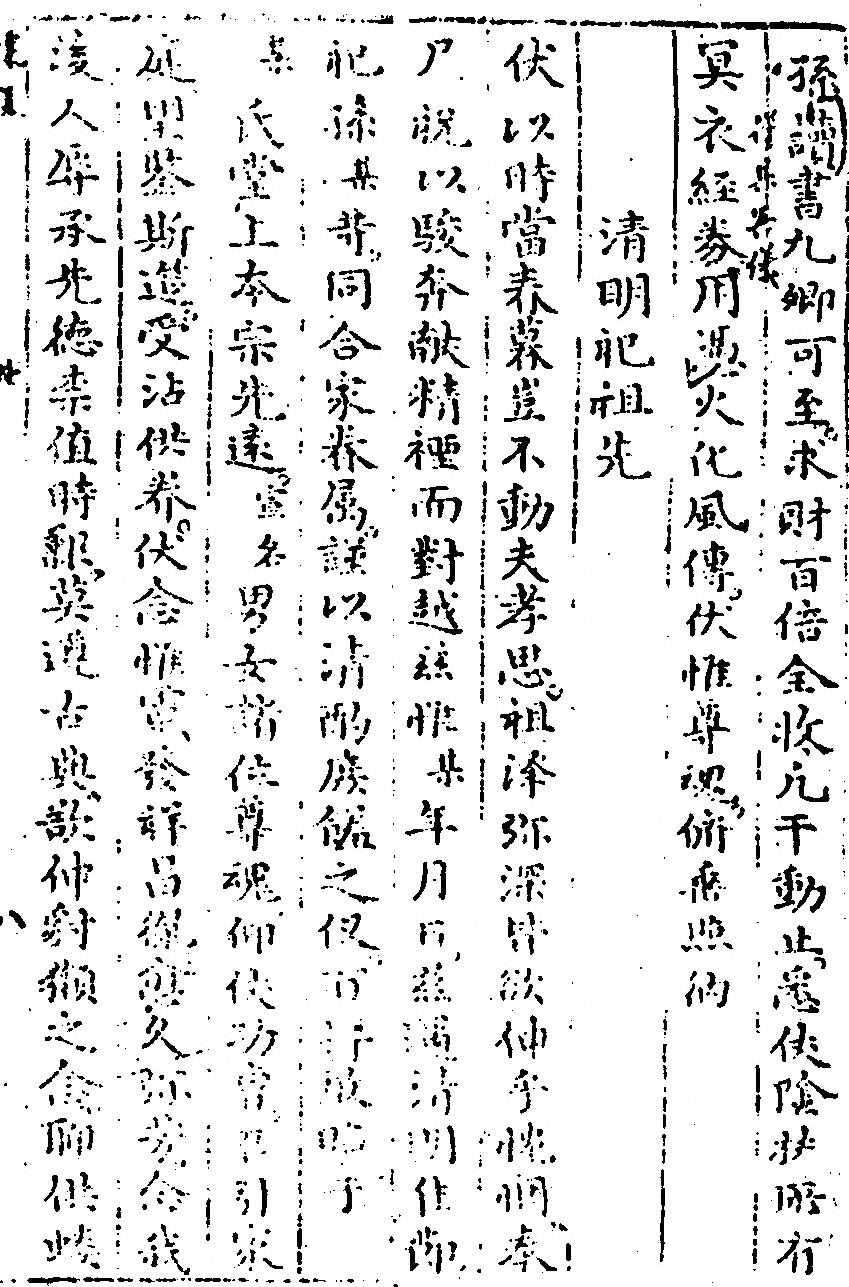 孫讀書九卿可至求財百倍全收凡干動止悉伏陰扶所有
謹具冥儀
冥衣經劵用憑火化風傳伏惟尊魂俯垂照納
清明祀祖先
伏以時當春暮豈不動夫孝思祖澤弥深皆欲伸乎悃奉
尸祝以駿奔献精禋而對越兹惟某年月日兹遇清明佳節
祀孫某等同合家眷属謹以清酌庶饈之儀百拜敢昭于
某氏堂上本宗先遠宣名男女諸位尊魂仰伏功曹引家
庭里鑒斯造受沾供养伏念惟宗發祥昌後愈久弥芳念我
後人辱承先德柰值時艱莫遵古典歆伸豺獺之念聊供